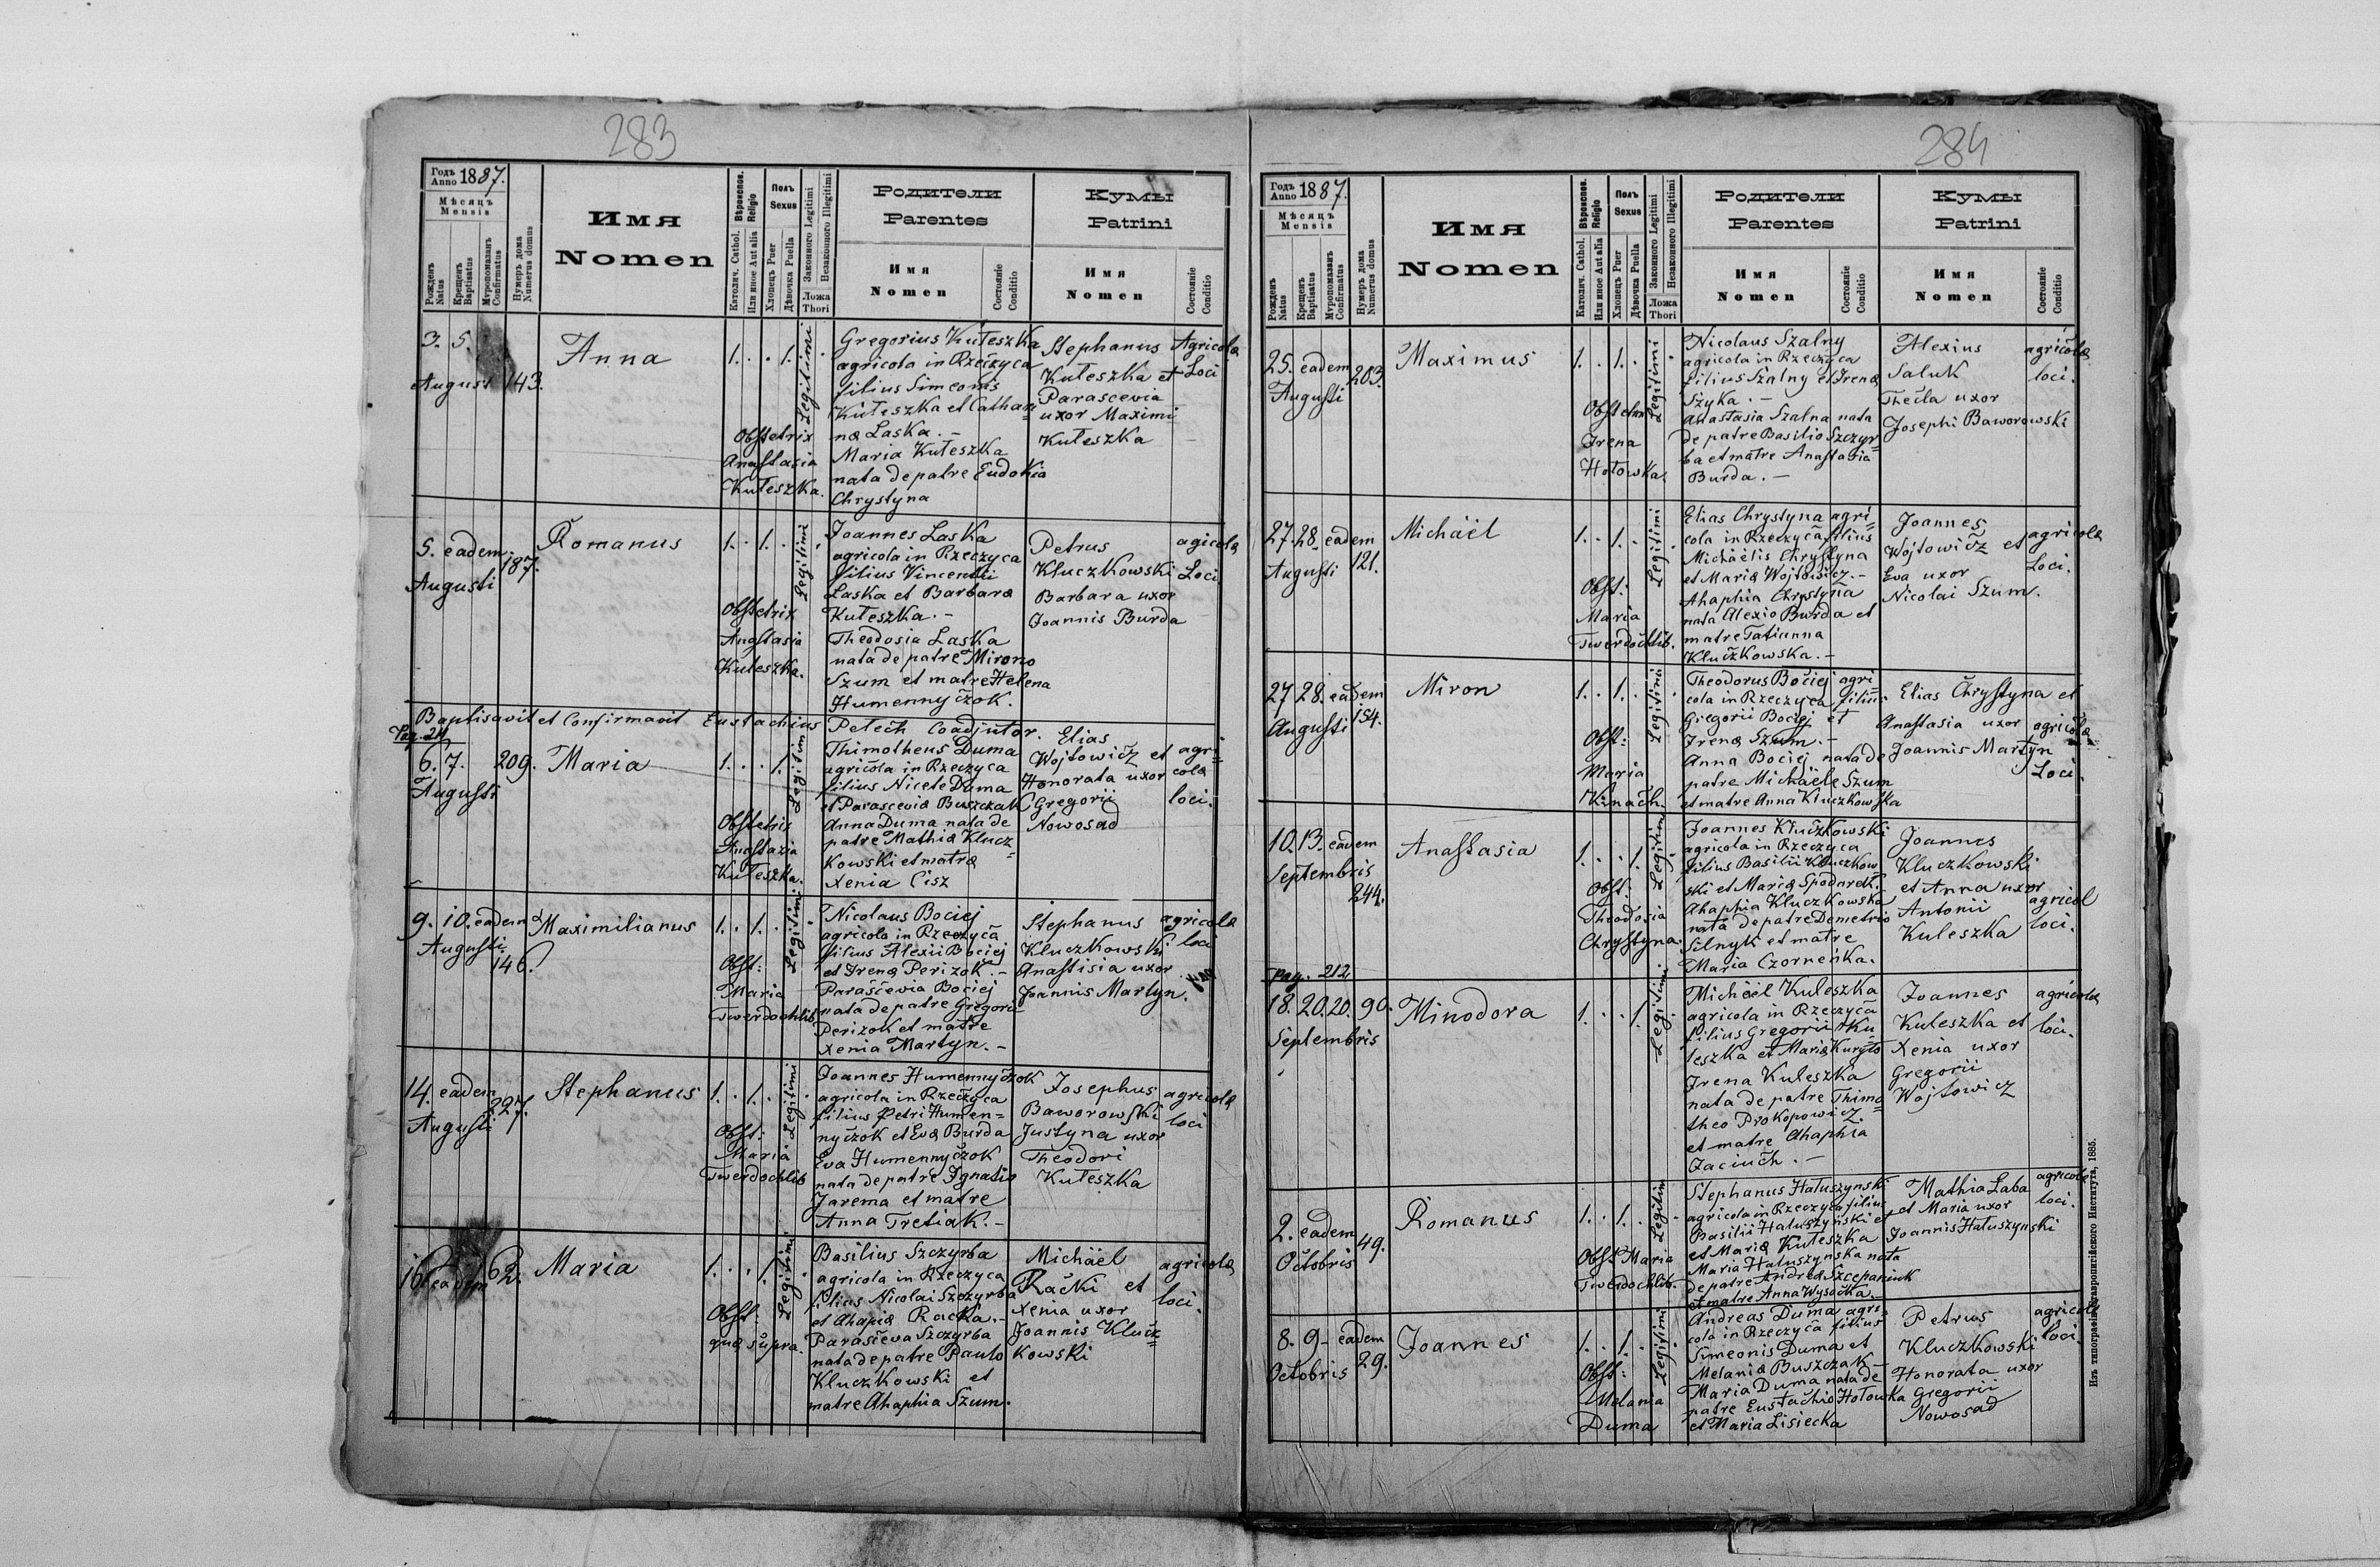 283
Годъ Anno 1887.
Мѣсяцъ Mensis
Рожденъ Natus
Крещенъ Baptisatus
Мѵропомазанъ Confirmatus
Нумеръ дома Numerus domus
Имя
Nomen
Вѣроиспов. Religio
Католич. Cathol.
Или иное Aut alia
Полъ Sexus
Хлопецъ Puer
Дѣвочка Puella
Законного Legitimi
Незаконного Illegitimi
Ложа Thori
Родители
Parentes
Имя
Nomen
Состояніе
Conditio
Кумы
Patrini
Имя
Nomen
Состояніе
Conditio
3. 5.
August 143.
Anna
1. . . 1.
Legitimi
Obstetrix
Anastasia
Kuteszka.
Gregorius Kuteszka
agricola in Rzeczyca
filius Simeonis
Kuteszka et Cathari=
næ Laska. –
Maria Kuteszka
nata de patre Eudokia
Chrystyna
Stephanus
Kuteszka et
Parascevia
uxor Maximi
Kuteszka
Agricolæ
Loci
5. eadem
Augusti 187.
Romanus
1. . 1. .
Legitimi
Obstetrix
Anastasia
Kuteszka.
Joannes Laska
agricola in Rzeczyca
filius Vincentii
Laska et Barbaræ
Kuteszka. –
Theodosia Laska
nata de patre Mirono
Szum et matre Helena
Humennyczok.
Petrus
Kluczkowski
Barbara uxor
Joannis Burda
agicolæ
Loci
Baptisavit et Confirmavit Eustachius Petech Coadjutor.
Pag. 211
6. 7. 209.
Augusti
Maria
1. . . 1.
Legitimi
Obstetris
Anastazia
Kuteszka.
Thimotheus Duma
agricola in Rzeczyca
filius Nicete Duma
et Parasceviæ Buszczak
Anna Duma nata de
patre Mathiæ Klucz=
kowski et matre
Xenia Cisz
Elias
Wojtowicz et
Honorata uxor
Gregorii
Nowosad
agri=
colæ
loci.
9. 10. eadem
Augusti
146.
Maximilianus
1. . 1. .
Legitimi
Obst:
Maria
Twerdochlib
Nicolaus Bociej
agricola in Rzeczyca
filius Alexii Bociej
et Irenæ Perizok. –
Parascevia Bociej
nata de patre Gregorio
Perizok et matre
Xenia Martyn. –
Stephanus
Kluczkowski
Anastisia uxor
Joannis Martyn.
agricolæ
loci
14. eadem
Augusti 227.
Stephanus
1. . 1. .
Legitimi
Obst:
Maria
Twerdochlib
Joannes Humennyczok
agricola in Rzeczyca
filius Petri Humen=
nyczok et Evæ Burda
Eva Humennyczok
nata de patre Ignatio
Jarema et matre
Anna Tretiak. –
Josephus
Baworowski
Justyna uxor
Theodori
Kuteszka
agricolæ
loci
16 eadem 62.
Maria
1. . . 1.
Legitimi
Obst:
quæ supra.
Basilius Szczyrba
agricola in Rzeczyca
filius Nicolai Szczyrba
et Ahapiæ Racka. –
Parasceva Szczyrba
nata de patre Paulo
Kluczkowski et
matre Ahaphia Szum.
Michäel
Racki et
Xenia uxor
Joannis Klucz=
kowski
agricolæ
loci.
284
Годъ Anno 1887.
Мѣсяцъ Mensis
Рожденъ Natus
Крещенъ Baptisatus
Мѵропомазанъ Confirmatus
Нумеръ дома Numerus domus
Имя
Nomen
Вѣроиспов. Religio
Католич. Cathol.
Или иное Aut alia
Полъ Sexus
Хлопецъ Puer
Дѣвочка Puella
Законного Legitimi
Незаконного Illegitimi
Ложа Thori
Родители
Parentes
Имя
Nomen
Состояніе
Conditio
Кумы
Patrini
Имя
Nomen
Состояніе
Conditio
25. eadem
Augusti 203.
Maximus
1. . 1. .
Legitimi
Irena
Hotowka.
Nicolaus Szalny
agricola in Rzeczyca
filius Szalny et Irenæ
Szyka. –
Anastasia Szalna nata
de patre Basilio Szczyr=
ba et matre Anastasia
Burda. –
Alexius
Saluk
Thecla uxor
Josephi Baworowski
agricolæ
loci.
27. 28. eadem
Augusti 121.
Michäel
1. . 1. .
Legitimi
Obst:
Maria
Twerdochlib.
Elias Chrystyna agri=
cola in Rzeczyca filius
Michäelis Chrystyna
et Mariæ Wojtowicz. –
Ahaphia Chrystyna
nata Alexio Burda et
matre Tatianna
Kluczkowska. –
Joannes
Wojtowicz et
Eva uxor
Nicolai Szum.
agricolæ
Loci.
27 28. eadem
Augusti 154.
Miron
1. . 1. .
Legitimi
Obst:
Maria
Kinach.
Theodorus Bociej agri=
cola in Rzeczyca filius
Gregorii Bociej et
Irenæ Szum. –
Anna Bociej nata de
patre Michäele Szum
et matre Anna Kluczkowska
Elias Chrystyna et
Anastasia uxor
Joannis Martyn
agricolæ
Loci.
10. 13. eadem
Septembris
244.
Anastasia
1. . . 1.
Legitimi
Obst:
Theodosia
Chrystyna.
Joannes Kluczkowski
agricola in Rzeczyca
filius Basilii Kluczkow
ski et Mariæ
Ahaphia Kluczkowska
nata de patre Demetrio
Silnyk et matre
Maria Czorneńka.
Joannes
Kluczkowski
et Anna uxor
Antonii
Kuleszka
agricol
loci.
pag. 212
18. 20. 20. 90.
Septembris
Minodora
1. . . 1.
Legitimi
Michäel Kuleszka
agricola in Rzeczyca
filius Gregorii Ku
leszka et Mariæ Kuryto
Irena Kuleszka
nata de patre Thimo=
theo Prokopowicz
et matre Ahaphia
Jaciuch. –
Joannes
Kuteszka et
Xenia uxor
Gregorii
Wojtowicz
agricolæ
loci.
2. eadem
Octobris 49.
Romanus
1. . 1. .
Legitim
Obst: Maria
Twerdochlib.
Stephanus Hatuszynski
agricola in Rzeczyca filius
Basilii Hatuszyński et
et Mariæ Kuteszka
Maria Hatuszynska nata
de patre Andrea Szcepaniuk
et matre Anna Wysocka. –
Mathia Laba
et Maria uxor
Joannis Hatuszynski
agricole
loci.
8. 9 – eadem
Octobris 29.
Joannes
1. . 1. .
Legitimi
Obst:
Melania
Duma
Andreas Duma agri=
cola in Rzeczyca filius
Simeonis Duma et
Melaniæ Buszczak –
Maria Duma nata de
patre Eustachio Hotowka
et Maria Lisiecka
Petrus
Kluczkowski
Honorata uxor
Gregorii
Nowosad
agricolæ
loci.
Изъ типографіи Ставропигійского Института, 1885.